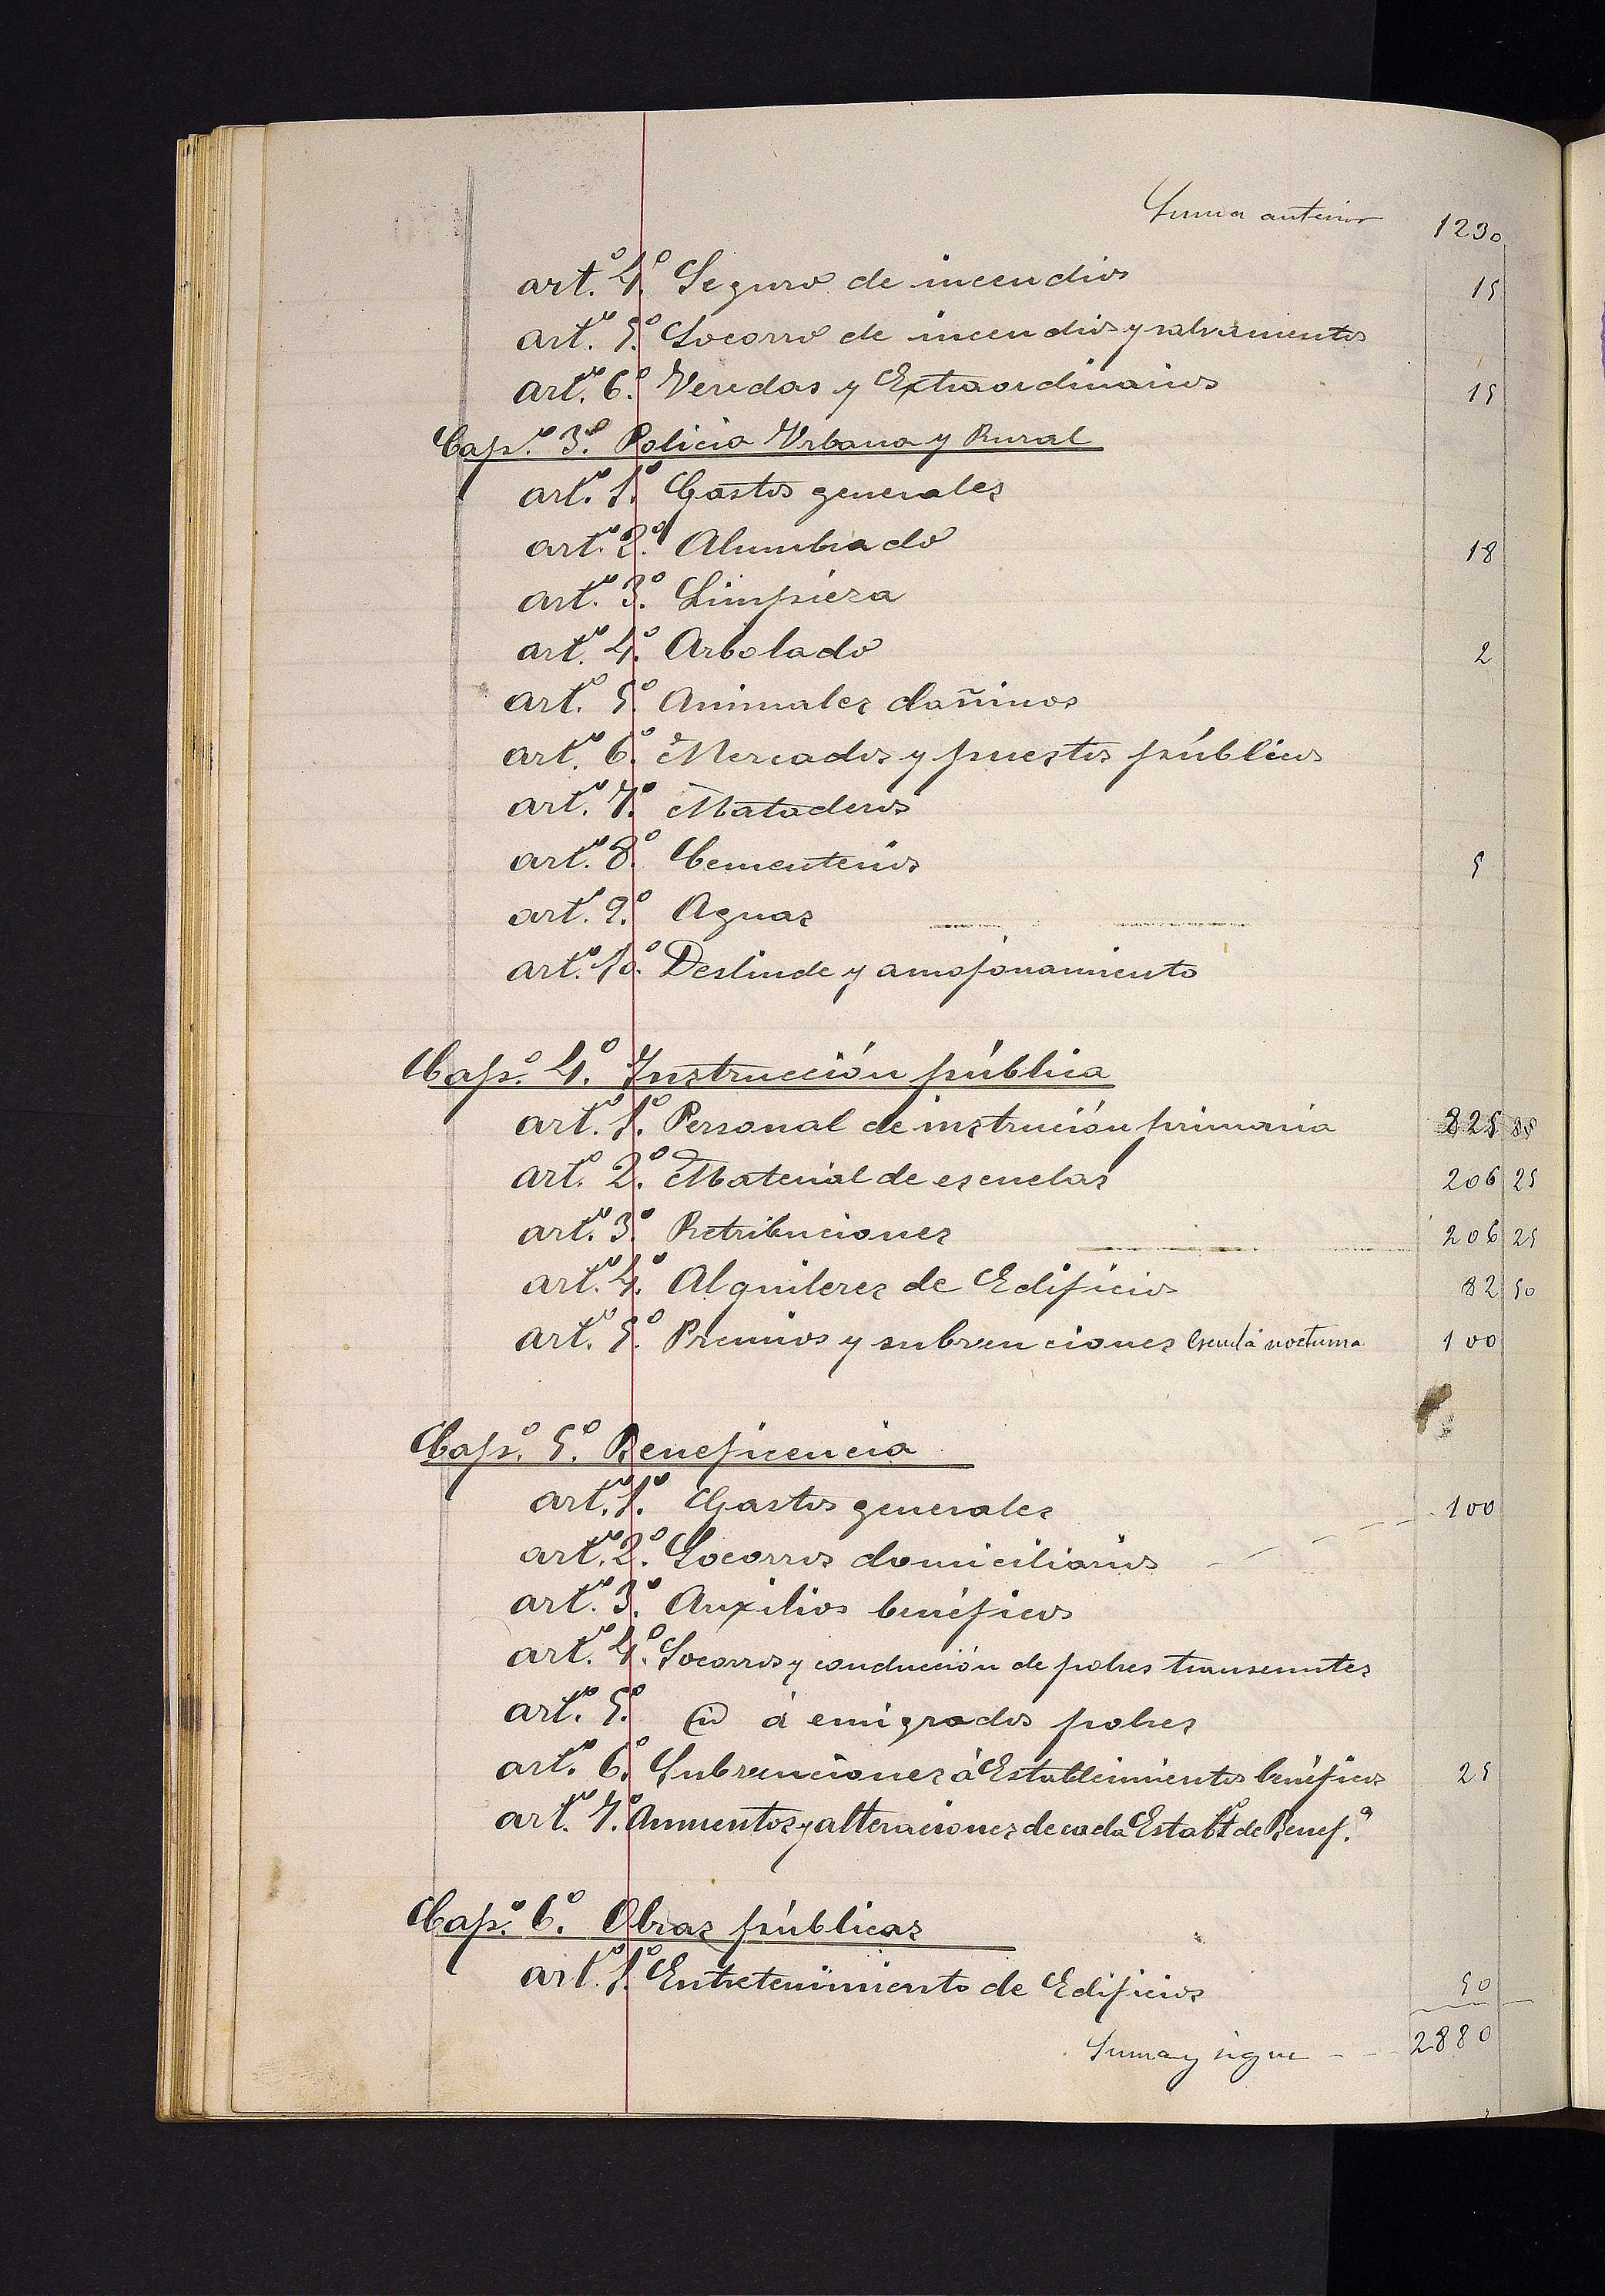 Suma anterior 1230
art.º 4.º Seguro de incendios 15
art.º 5.º Socorro de incendios y salvamentos
art.º 6.º Veredas y Extraordinarios 15
Cap.º 3.º Policia Urbana y Rural
art.º 1.º Gastos generales
art.º 2.º Alumbrado 18
art.º 3.º Limpieza
art.º 4.º Arbolado 2
art.º 5.º Animales dañinos
art.º 6.º Mercados y puestos públicos
art.º 7.º Mataderos
art.º 8.º Cementerios 5
art.º 9.º Aguas
art.º 10.º Deslinde y amojonamiento
Cap.º 4.º Instrucción pública
art.º 1.º Personal de instrución primaria 825
art.º 2.º Material de escuelas 206 25
art.º 3.º Retribuciones 206 25
art.º 4.º Alquileres de Edificios 82 50
art.º 5.º Premios y subvenciones Escuela nocturna 100
Cap.º 5.º Beneficencia
art.º 1.º Gastos generales 100
art.º 2.º Socorros domiciliarios
art.º 3.º Auxilios benéficos
art.º 4.º Socorros y conducción de pobres transeuntes
art.º 5.º á emigrados pobres
art.º 6.º Subvenciones á Establecimientos benéficos 25
art.º 7.º Aumentos y alteraciones de cada Establ.to de Benef.ª
Cap.º 6.º Obras públicas
art.º 1.º Entretenimiento de Edificios 50
Suma y sigue 2880